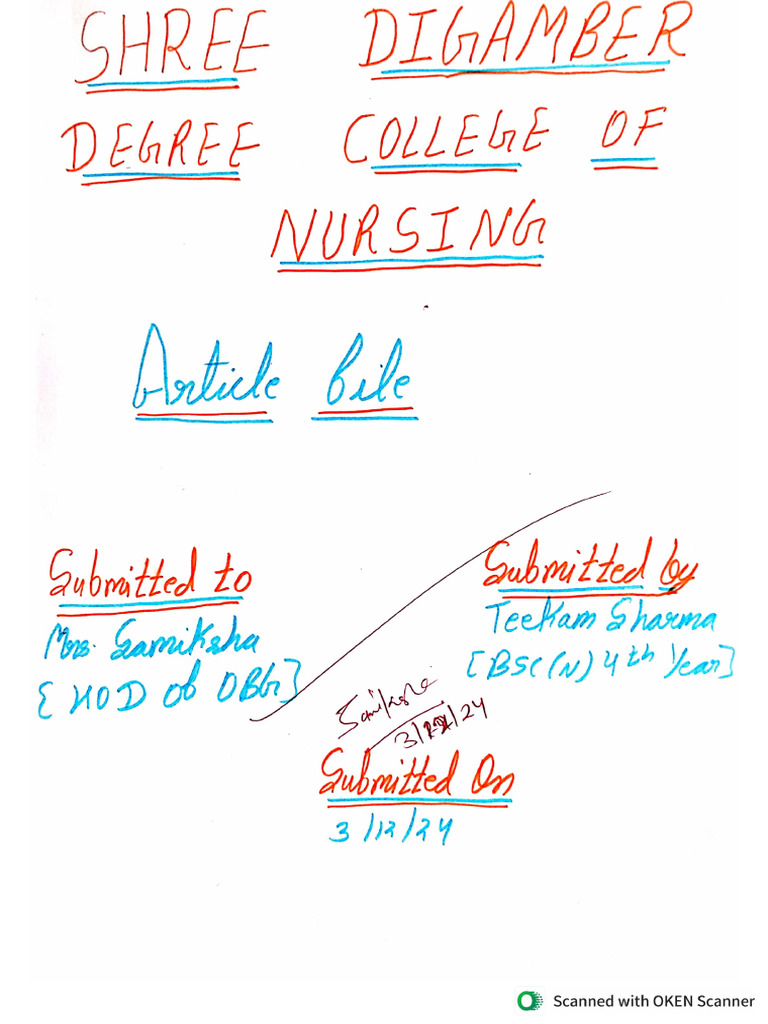 SHREE DIGAMBER
DEGREE COLLEGE OF
NURSING
Article file
Submitted to
Mrs. Samiksha
{HOD of OBG}
Submitted by
Teekam Sharma
[BSc(N) 4th Year]
Samiksha
3/12/24
Submitted On
3/12/24
Scanned with OKEN Scanner